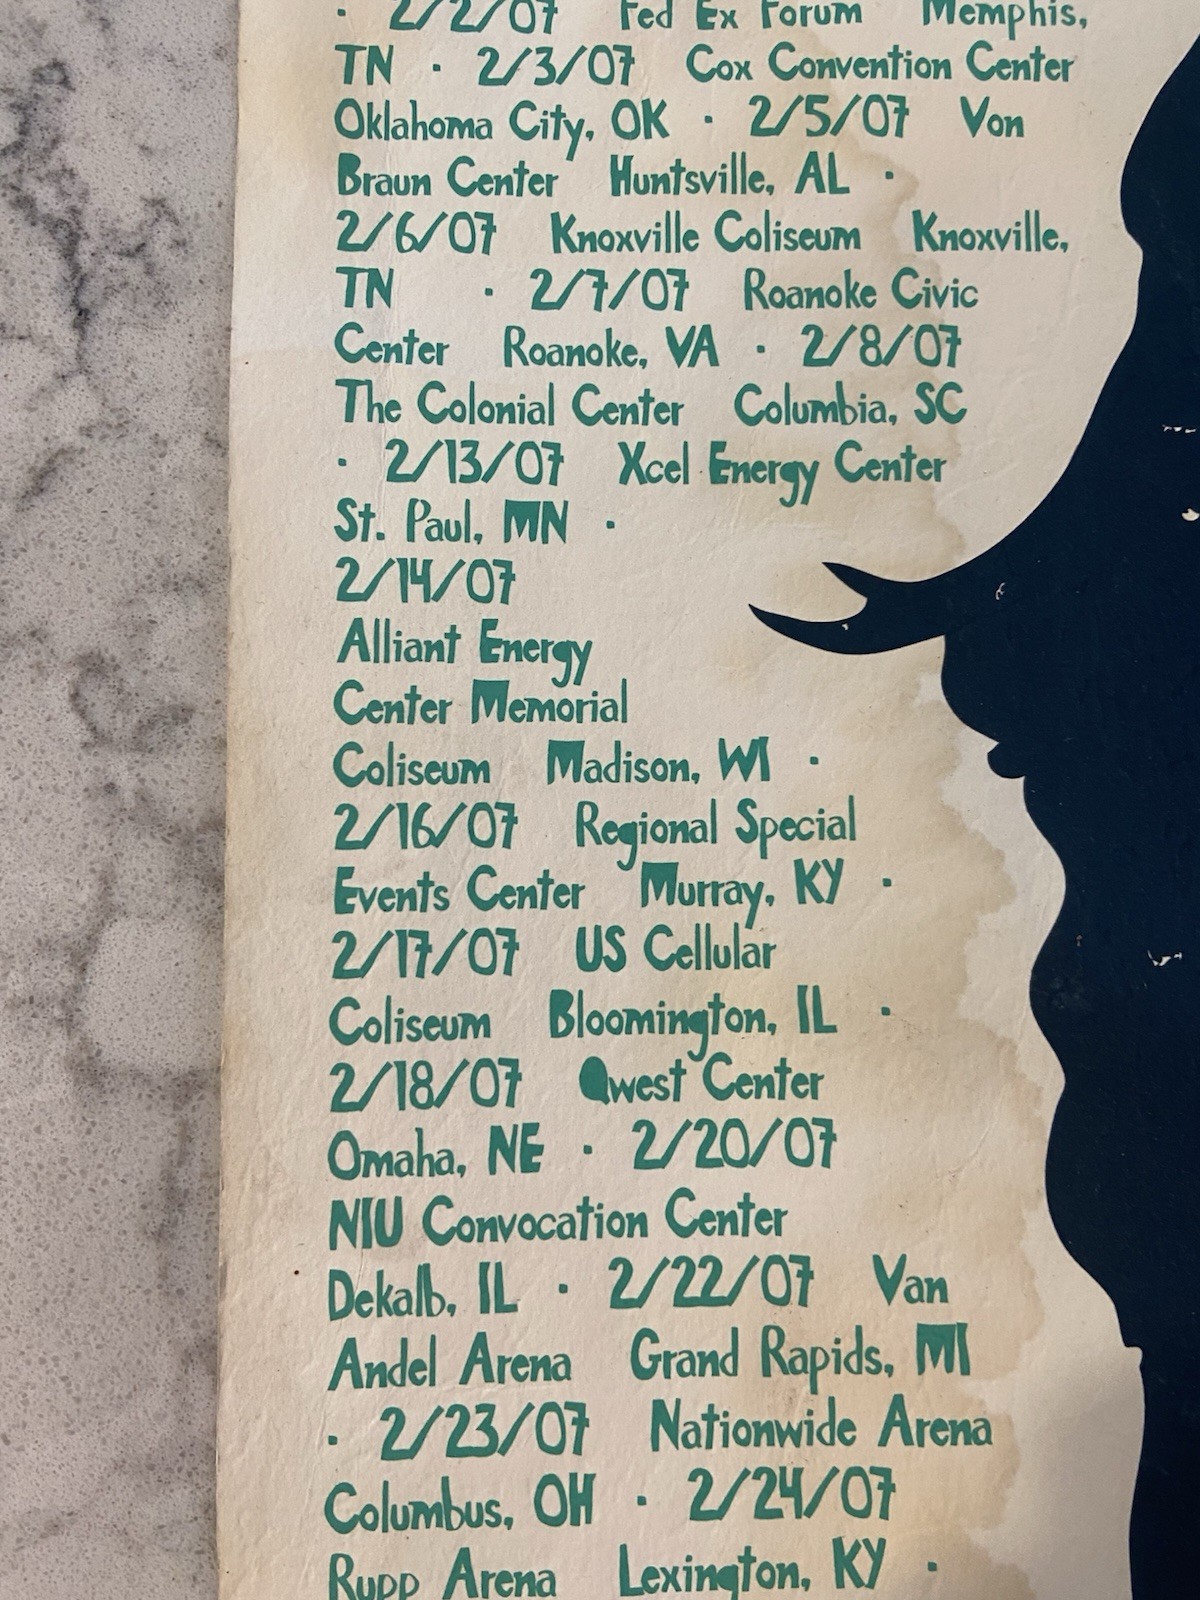 · 2/2/07 Fed Ex Forum Memphis,
TN · 2/3/07 Cox Convention Center
Oklahoma City, OK · 2/5/07 Von
Braun Center Huntsville, AL ·
2/6/07 Knoxville Coliseum Knoxville,
TN · 2/7/07 Roanoke Civic
Center Roanoke, VA · 2/8/07
The Colonial Center Columbia, SC
· 2/13/07 Xcel Energy Center
St. Paul, MN ·
2/14/07
Alliant Energy
Center Memorial
Coliseum Madison, WI ·
2/16/07 Regional Special
Events Center Murray, KY ·
2/17/07 US Cellular
Coliseum Bloomington, IL ·
2/18/07 Qwest Center
Omaha, NE · 2/20/07
NIU Convocation Center
Dekalb, IL · 2/22/07 Van
Andel Arena Grand Rapids, MI
· 2/23/07 Nationwide Arena
Columbus, OH · 2/24/07
Rupp Arena Lexington, KY ·